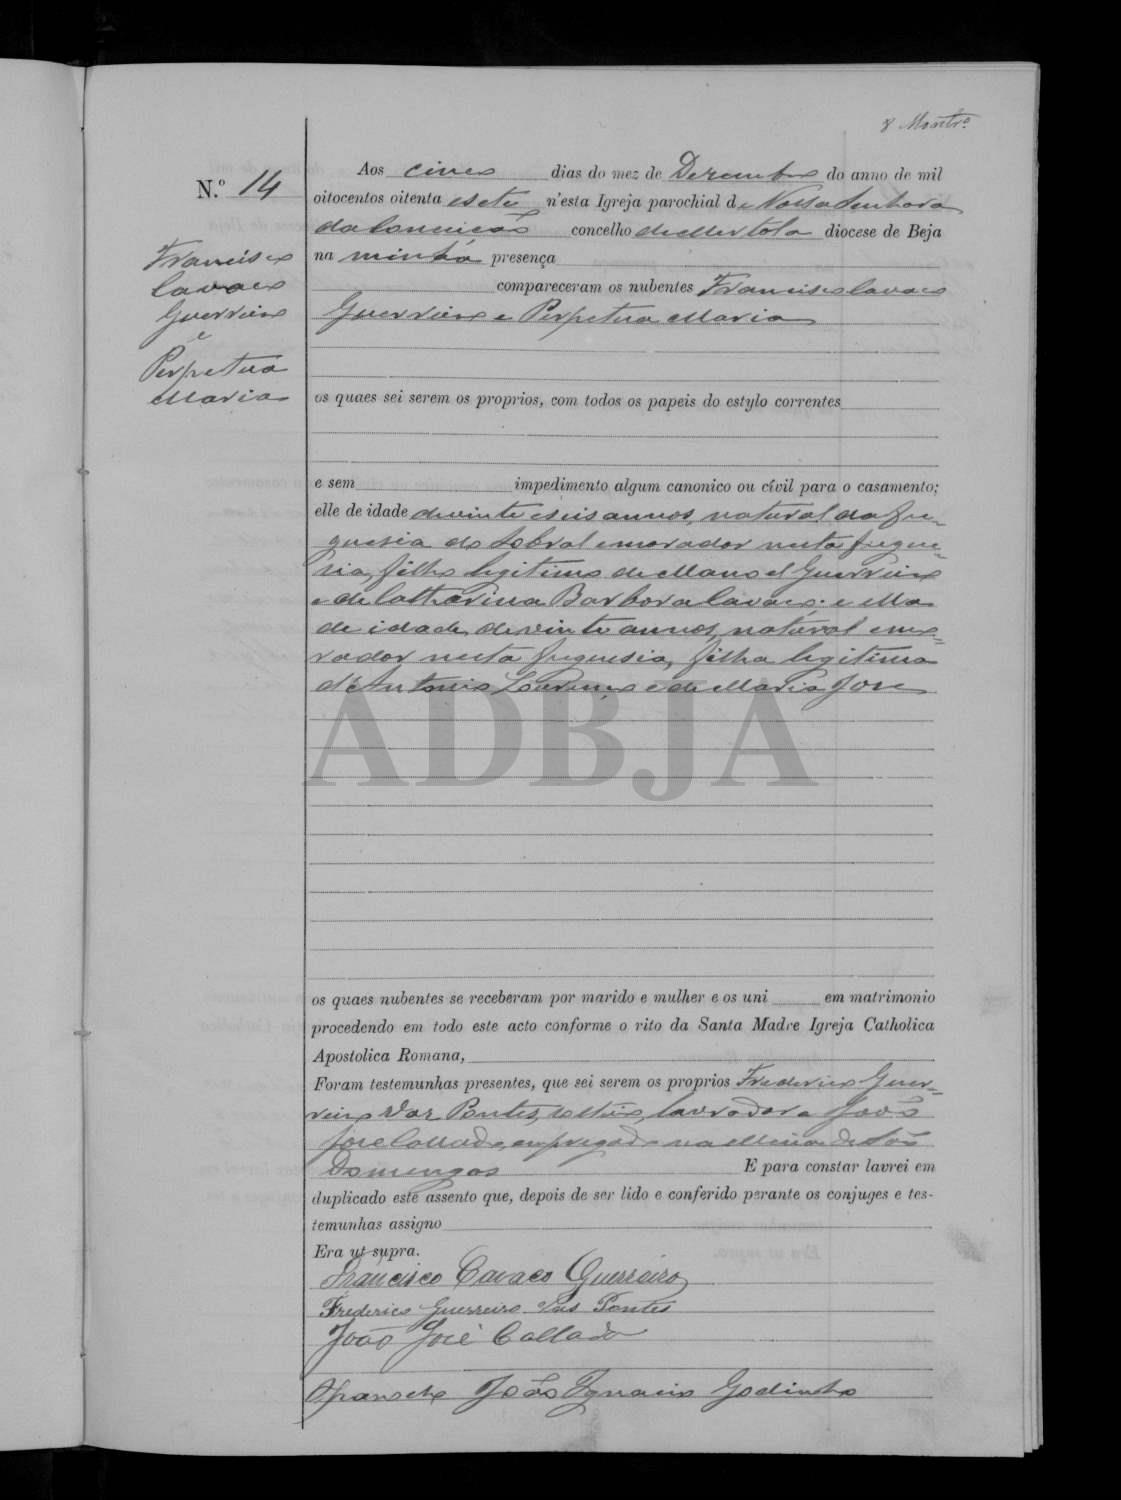 8 Montrº
Aos cinco dias do mez de Dezembro do anno de mil
N.º 14
oitocentos oitenta e sete n'esta Igreja parochial de Nossa Senhora
da Conceicão concelho de Mertola diocese de Beja
Francisco
na minha presença
Cavaco
compareceram os nubentes Francisco Cavaco
Guerreiro
Guerreiro e Perpetua Maria
e
Perpetua
Maria
os quaes sei serem os proprios, com todos os papeis do estylo correntes
e sem impedimento algum canonico ou cívil para o casamento;
elle de idade de vinte e seis annos, natural da fre-
guesia do Sobral e morador nesta fregue-
sia, filho legitimo de Manoel Guerreiro
e de Catharina Barbora Cavaco; e ella
de idade de vinte annos, natural e mo=
rador nesta freguesia, filha legitima
d'Antonio Lourenço e de Maria Jose
ADBJA
os quaes nubentes se receberam por marido e mulher e os uni em matrimonio
procedendo em todo este acto conforme o rito da Santa Madre Igreja Catholica
Apostolica Romana,
Foram testemunhas presentes, que sei serem os proprios Frederico Guer=
reiro Vaz Pontes, solteiro, lavrador e João
Jose Collado, empregado na Mina de São
Domingos E para constar lavrei em
duplicado este assento que, depois de ser lido e conferido perante os conjuges e tes-
temunhas assigno
Era ut supra.
Francisco Cavaco Guerreiro
Frederico Guerreiro Vas Pontes
João José Collado
João Ignacio Godinho